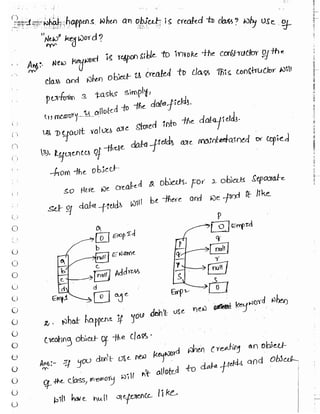 what happens when an object is created to class? why use of
"New" keyword?
Ans:- New keyword is responsible to invoke the constructor of the
class and when object is created to class This constructor will
perform 3 tasks simply,
(1) memory is alloted to the data-fields.
(2) Default values are stored into the datafields.
(3) References of these data-fields are maintertained or copied
from the object
so Here we created 2 objects. For 2 objects separate
set of data-fields will be there and we find it like.
P
a
0 EmpId
0 EmpId
q
b
P null
a null EName
q r
b c
r null
c null Address
S s
d d
0
Emp1 0 age
Emp2
2. what happens if you don't use new keyword when
creating object of the class.
Ans:- If you don't use new keyword when creating an object
of the class, memory will n't alloted to data-fields and object
will have null reference like.